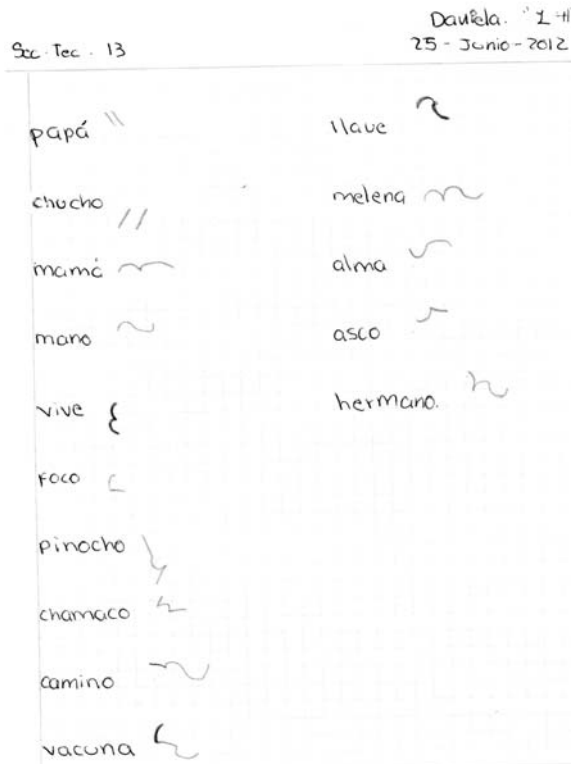 Daniela. "1 H
Sec. Tec. 13
25 - Junio - 2012
papá
chucho
mamá
mano
vive
foco
pinocho
chamaco
camino
vacuna
llave
melena
alma
asco
hermano.